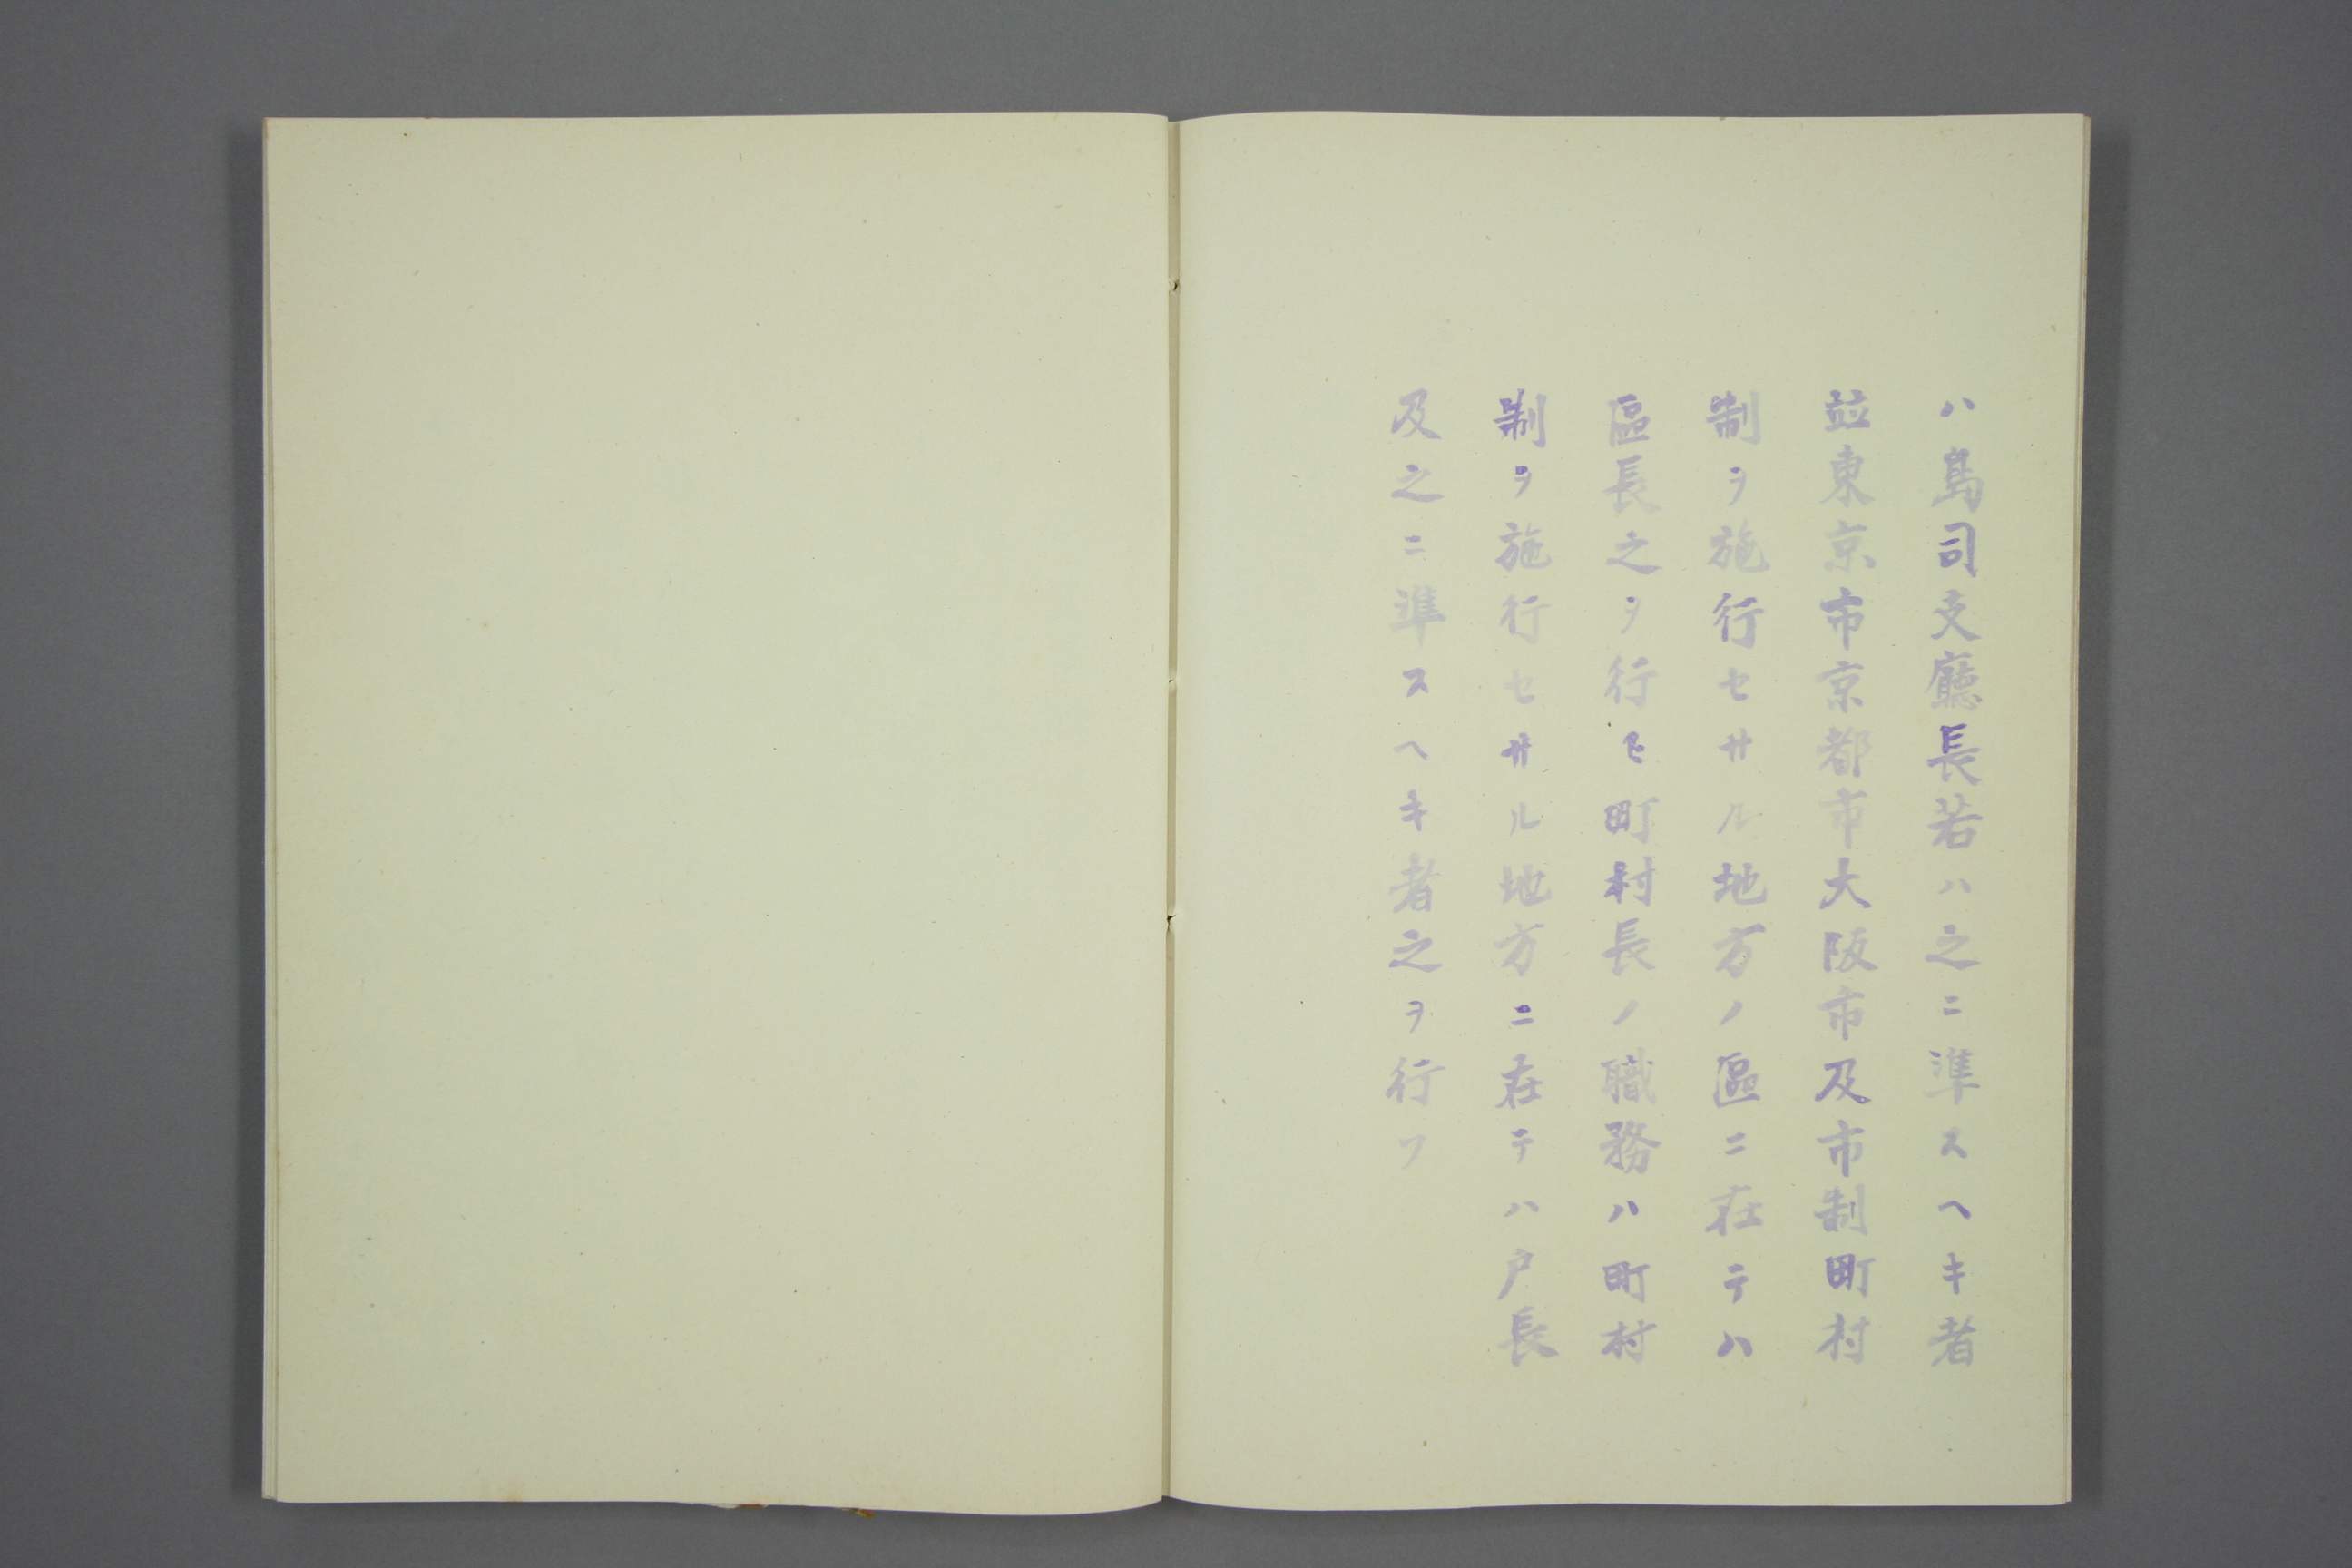 ハ島司支廳長若ハ之ニ準スヘキ者
並東京市京都市大阪市及市制町村
制ヲ施行セサル地方ノ區ニ在テハ
區長之ヲ行ヒ町村長ノ職務ハ町村
制ヲ施行セサル地方ニ在テハ戸長
及之ニ準スヘキ者之ヲ行フ